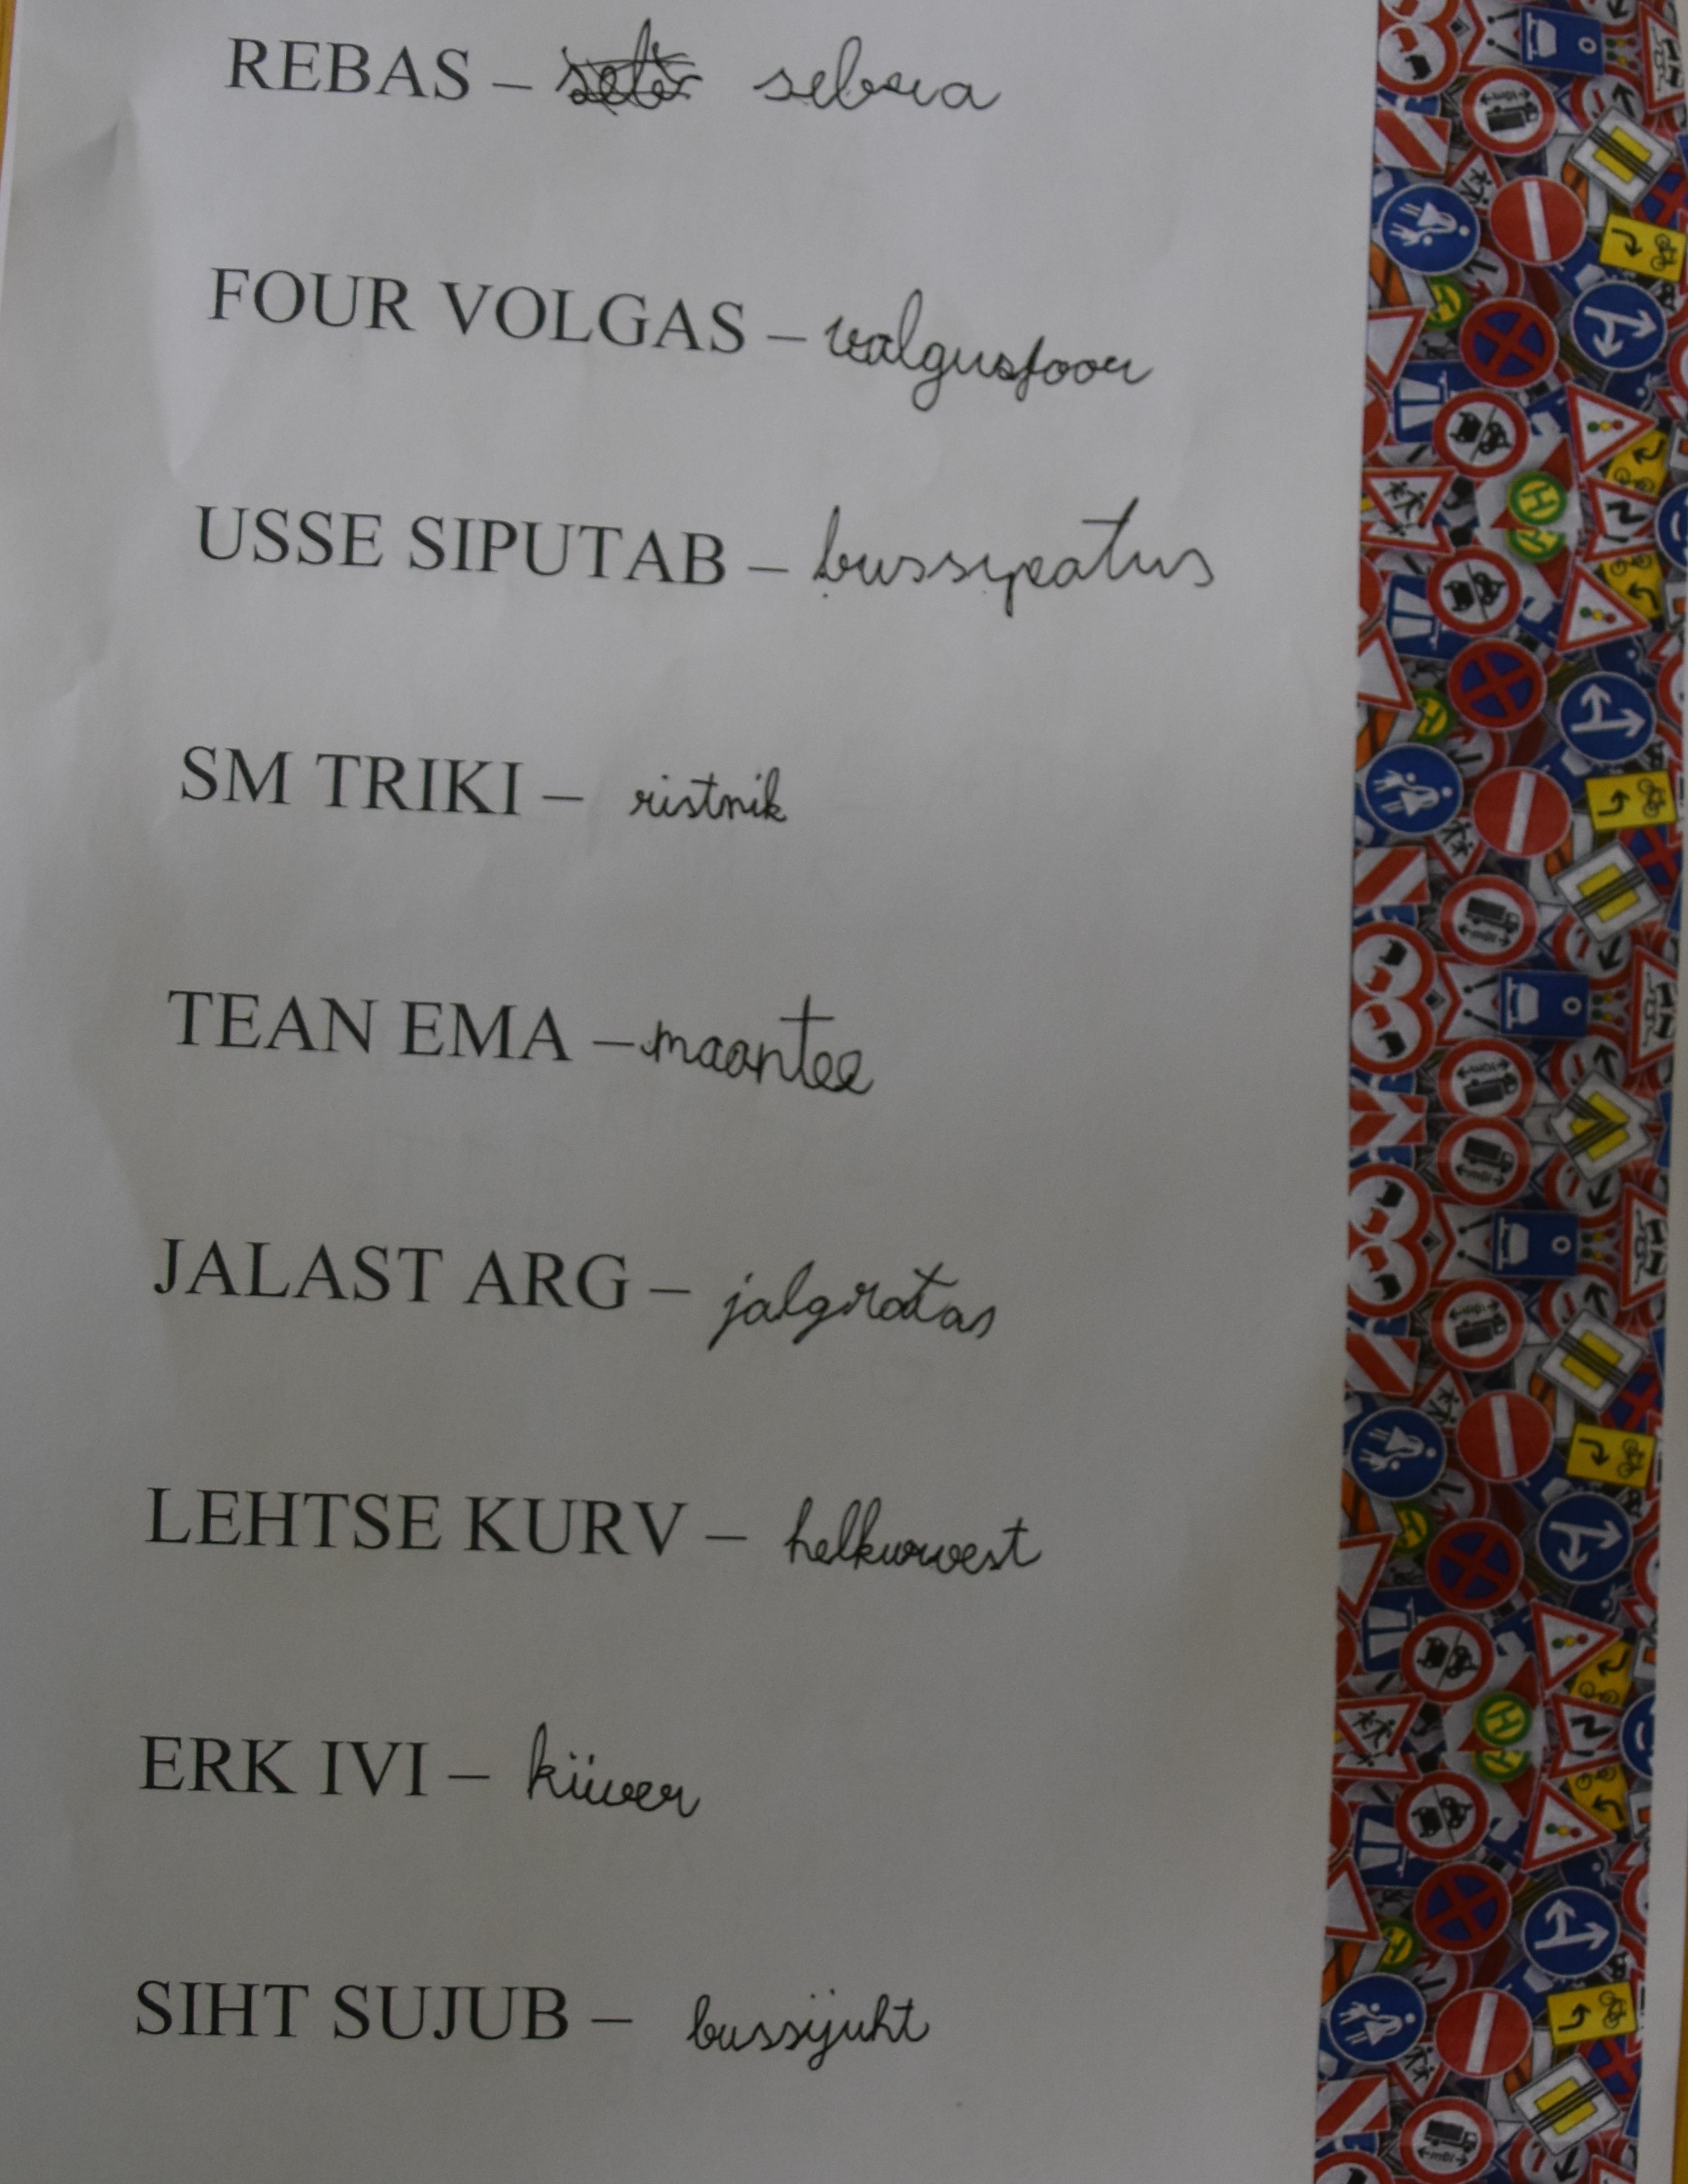 REBAS – sebra
FOUR VOLGAS – valgusfoor
USSE SIPUTAB – bussipeatus
SM TRIKI – ristmik
TEAN EMA – maantee
JALAST ARG – jalgratas
LEHTSE KURV – helkurvest
ERK IVI – kiiver
SIHT SUJUB – bussijuht